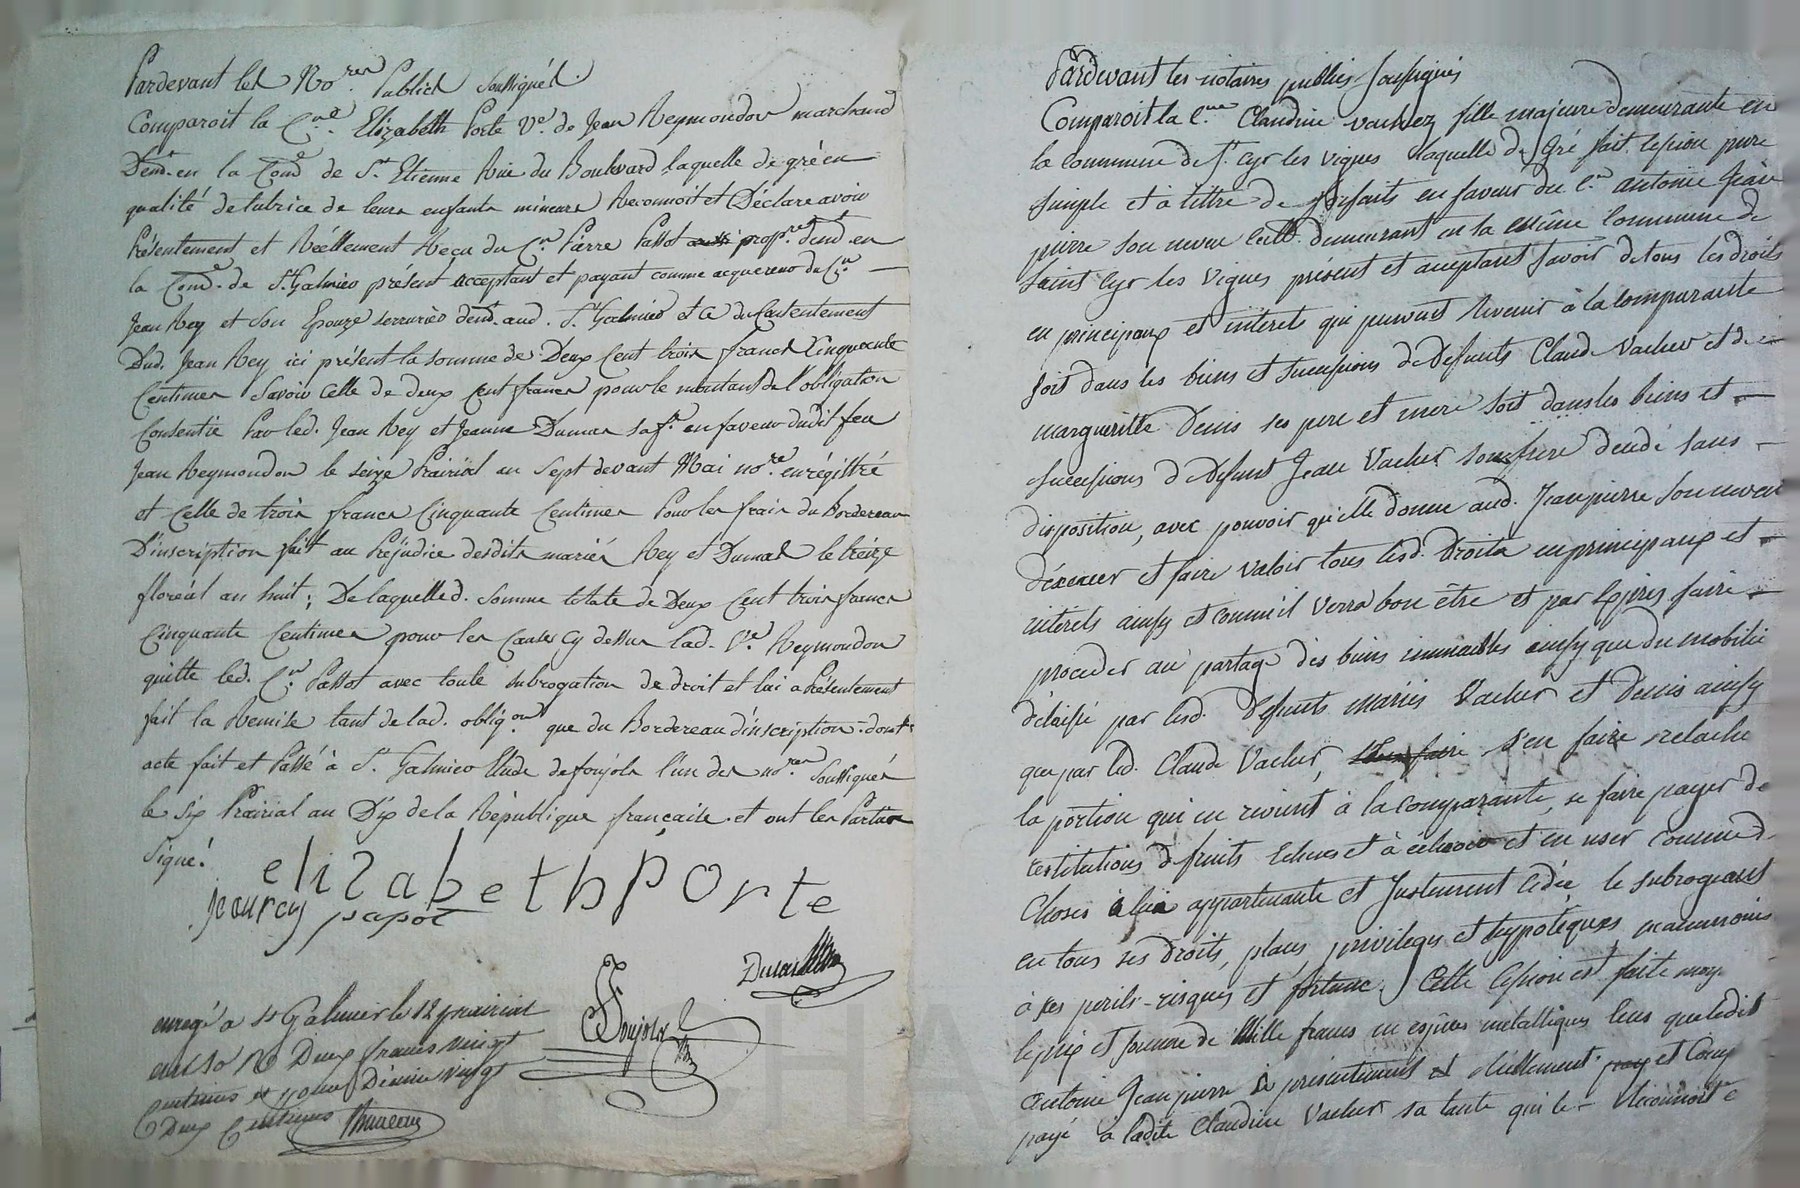 Pardevant les No.res Publics soussignés.
Comparoit la C.ne Elizabeth Porte V.e de Jean Reymondon marchand
Demt. en la Com.e de St. Etienne Rue du Boulvard laquelle de gré en
qualité de tutrice de leurs enfants mineurs Reconnoit et Déclare avoir
Présentement et Réellement Reçu du C.n Pierre Passot prop.re demt. en
la Com.e de St. Galmier présent acceptant et payant comme acquereur du C.n
Jean Rey et son Epouze serrurier demt. aud. St. Galmier et ce du Consentement
Dud. Jean Rey ici présent la somme de Deux Cent trois francs Cinquante
Centimes Savoir Celle de deux Cent francs pour le montant de l'obligation
Consentie Par led. Jean Rey et Jeanne Dumas sa f.e en faveur dudit feu
Jean Reymondon le seize Prairial an Sept devant Mai no.re enrégistré
et Celle de trois francs Cinquante Centimes Pour les frais du Bordereau
D'inscription fait au Préjudice desdits mariés Rey et Dumas le treize
floréal an huit; De laquelle d. somme totale de Deux Cent trois francs
Cinquante Centimes pour les Causes cy dessus lad. V.e Reymondon
quitte led. C.n Passot avec toute subrogation de droit et lui a Présentement
fait la Remise tant de lad. oblig.on que du Bordereau d'inscription. dont
acte fait et Passé à St. Galmier Etude de foujols l'un des no.res Soussignés
le six Prairial an Dix de la République française. et ont les Parties
Signé.
elizabeth porte
jean rey papot
Foujols
enregé a St Galmier le 12 prairial
an 10 R Deux francs vingt
centimes et pour Dixme vingt
Deux Centimes
Pardevant les notaires publics soussignés
Comparoit la C.ne Claudine vacher fille majeure demeurante en
la commune de St. Cyr les vignes laquelle de gré fait cession pure
simple et à tittre de forfaits en faveur du C.n antoine Jean
pierre son neveu demeurant en la même commune de
Saint Cyr les vignes présent et acceptant savoir de tous les droits
en principaux et interets qui peuvent revenir à la comparante
soit dans les biens et successions de Défunts Claude Vacher et de
margueritte Denis ses pere et mere soit dans les biens et
successions de Défunt Jean Vacher son frere décédé sans
disposition, avec pouvoir qu'elle donne aud. Jean pierre son neveu
d'exercer et faire valoir tous lesd. Droits en principaux et
interets ainsy et comme il verra bon être et par exprès faire
proceder au partage des biens immeubles ainsy que du mobilié
délaissé par lesd. Défunts mariés Vacher et Denis ainsy
que par led. Claude Vacher, s'en faire relache
la portion qui en revient à la comparante, se faire payer de
restitutions de fruits échus et à echoir et en user comme d.
choses à lui appartenante et justement cédée le subrogeant
en tous ses droits, places, privileges et hypotèques neanmoins
à ses perils risques et fortune. Cette cession est faite moy.
le prix et somme de Mille francs en espèces metalliques leus que ledit
antoine Jean pierre a présentement et réellement et Comp
payé à ladite Claudine Vacher sa tante qui le reconnoit